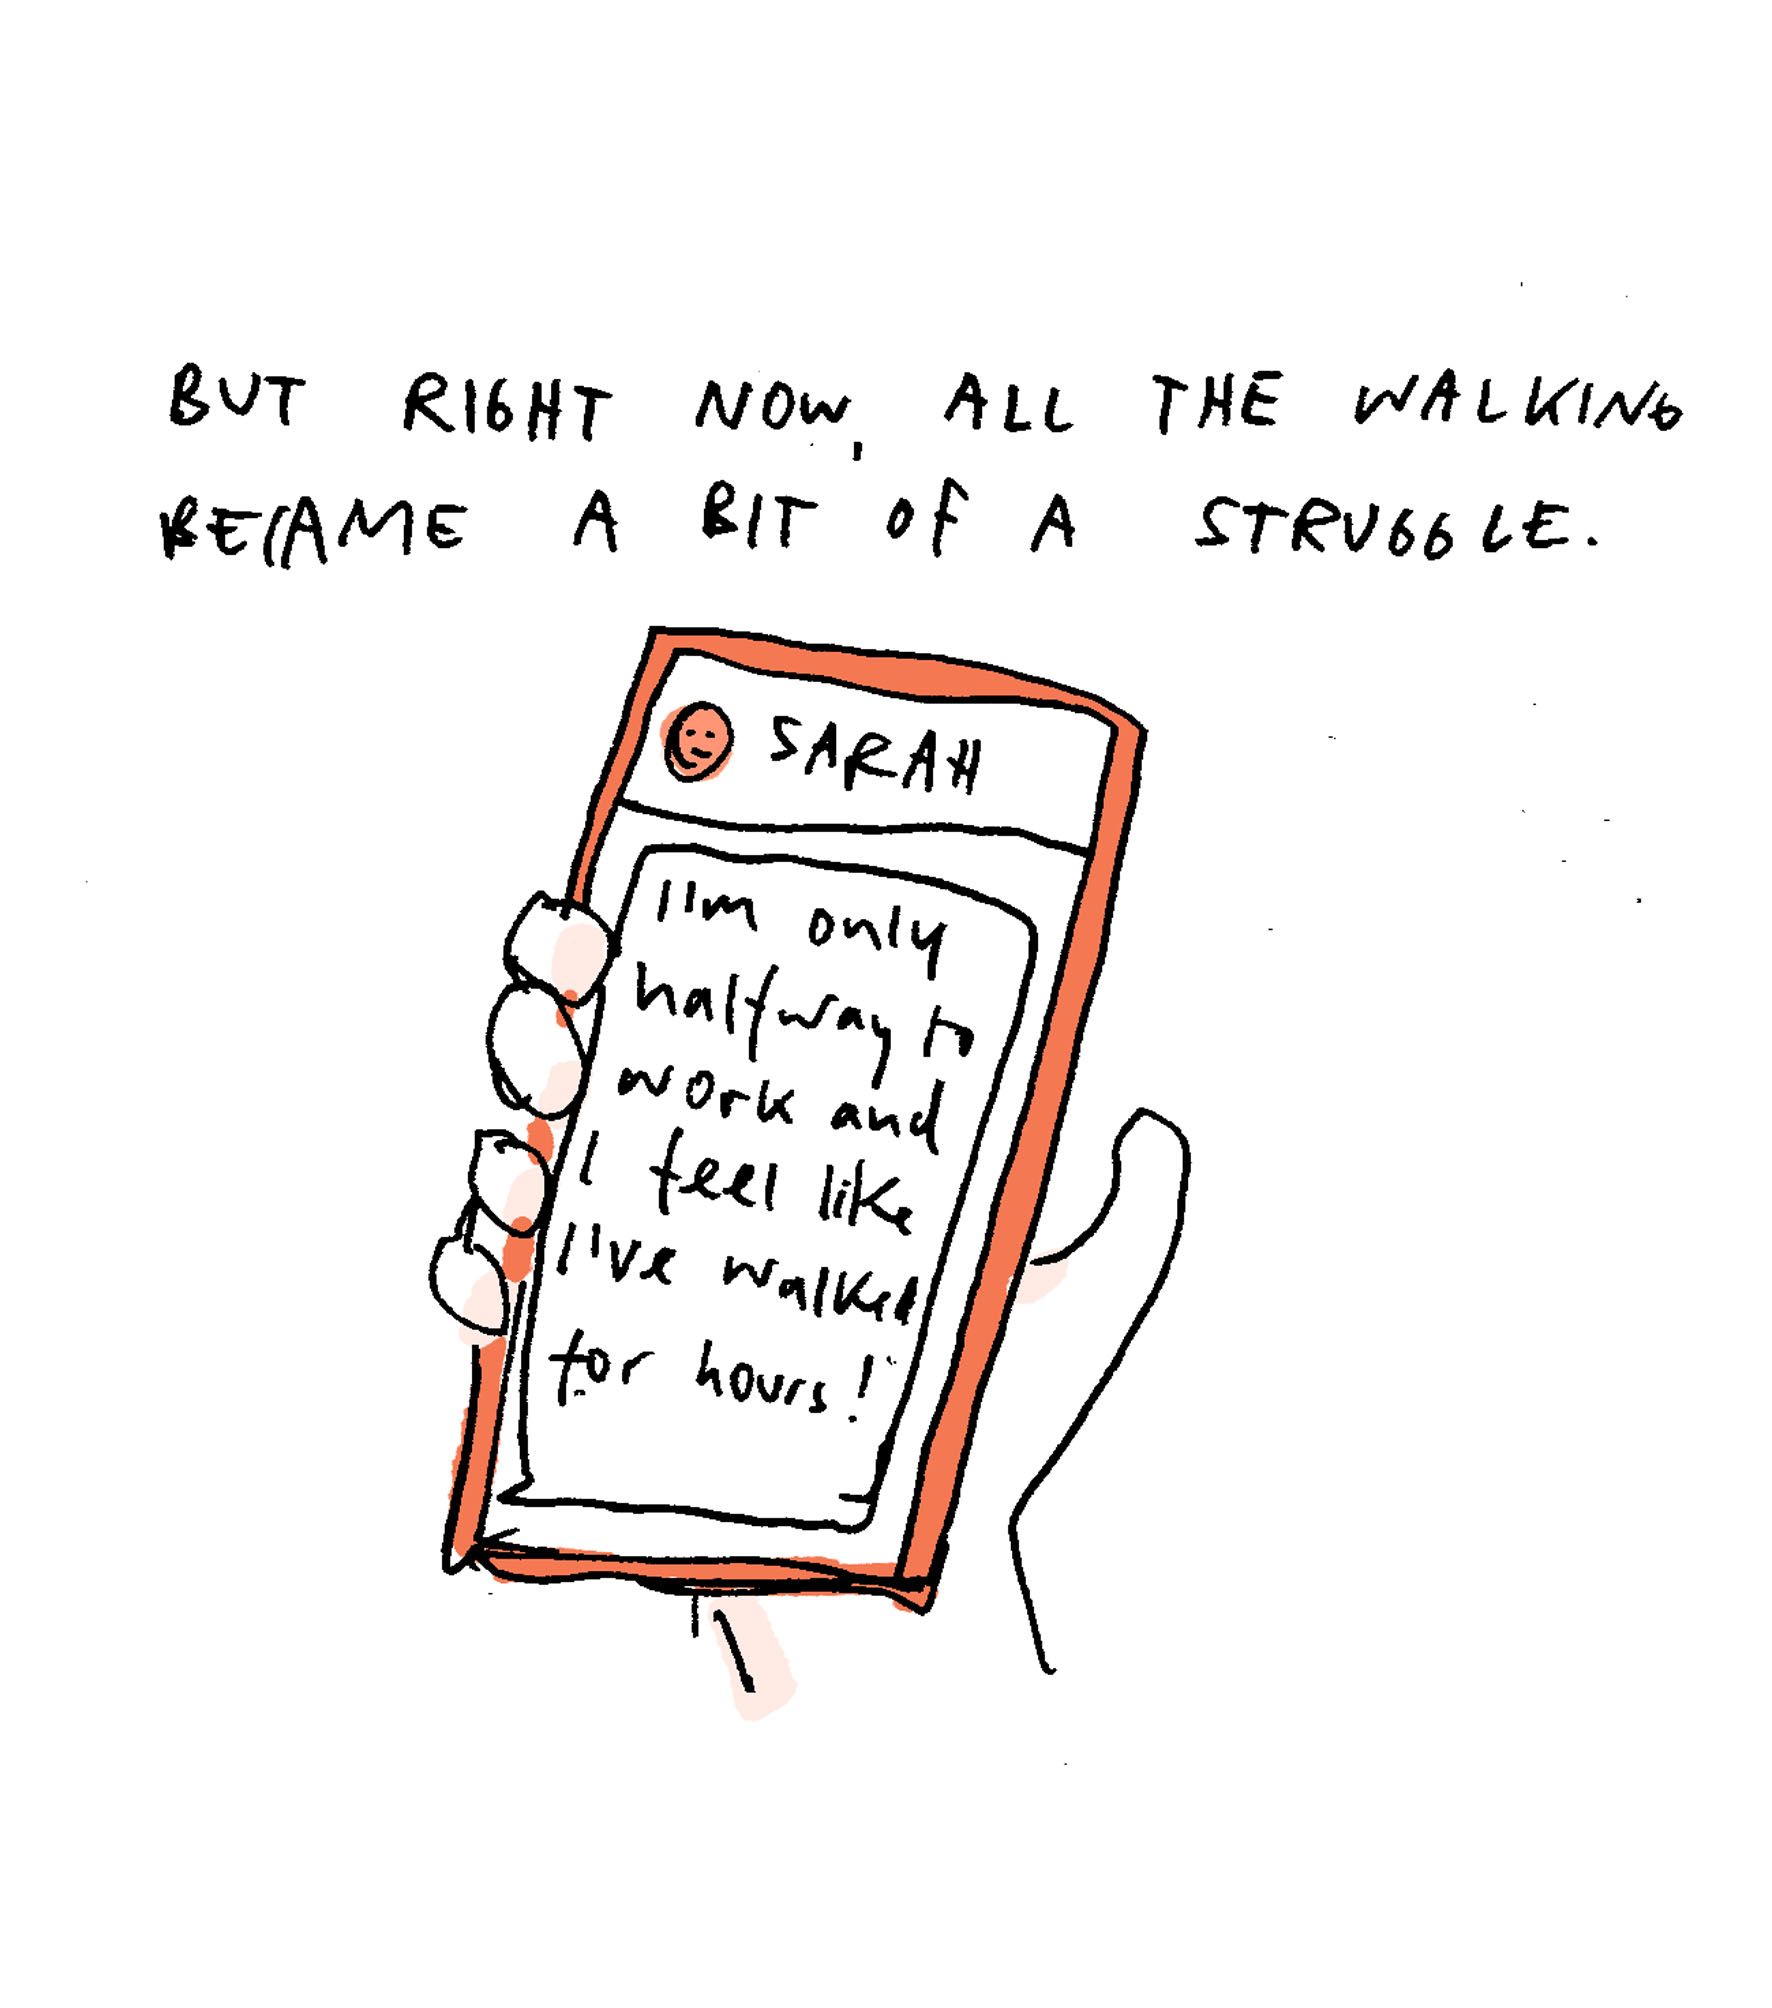 BUT RIGHT NOW, ALL THE WALKING
BECAME A BIT OF A STRUGGLE.
SARAH
I'm only
halfway to
work and
I feel like
I've walked
for hours!